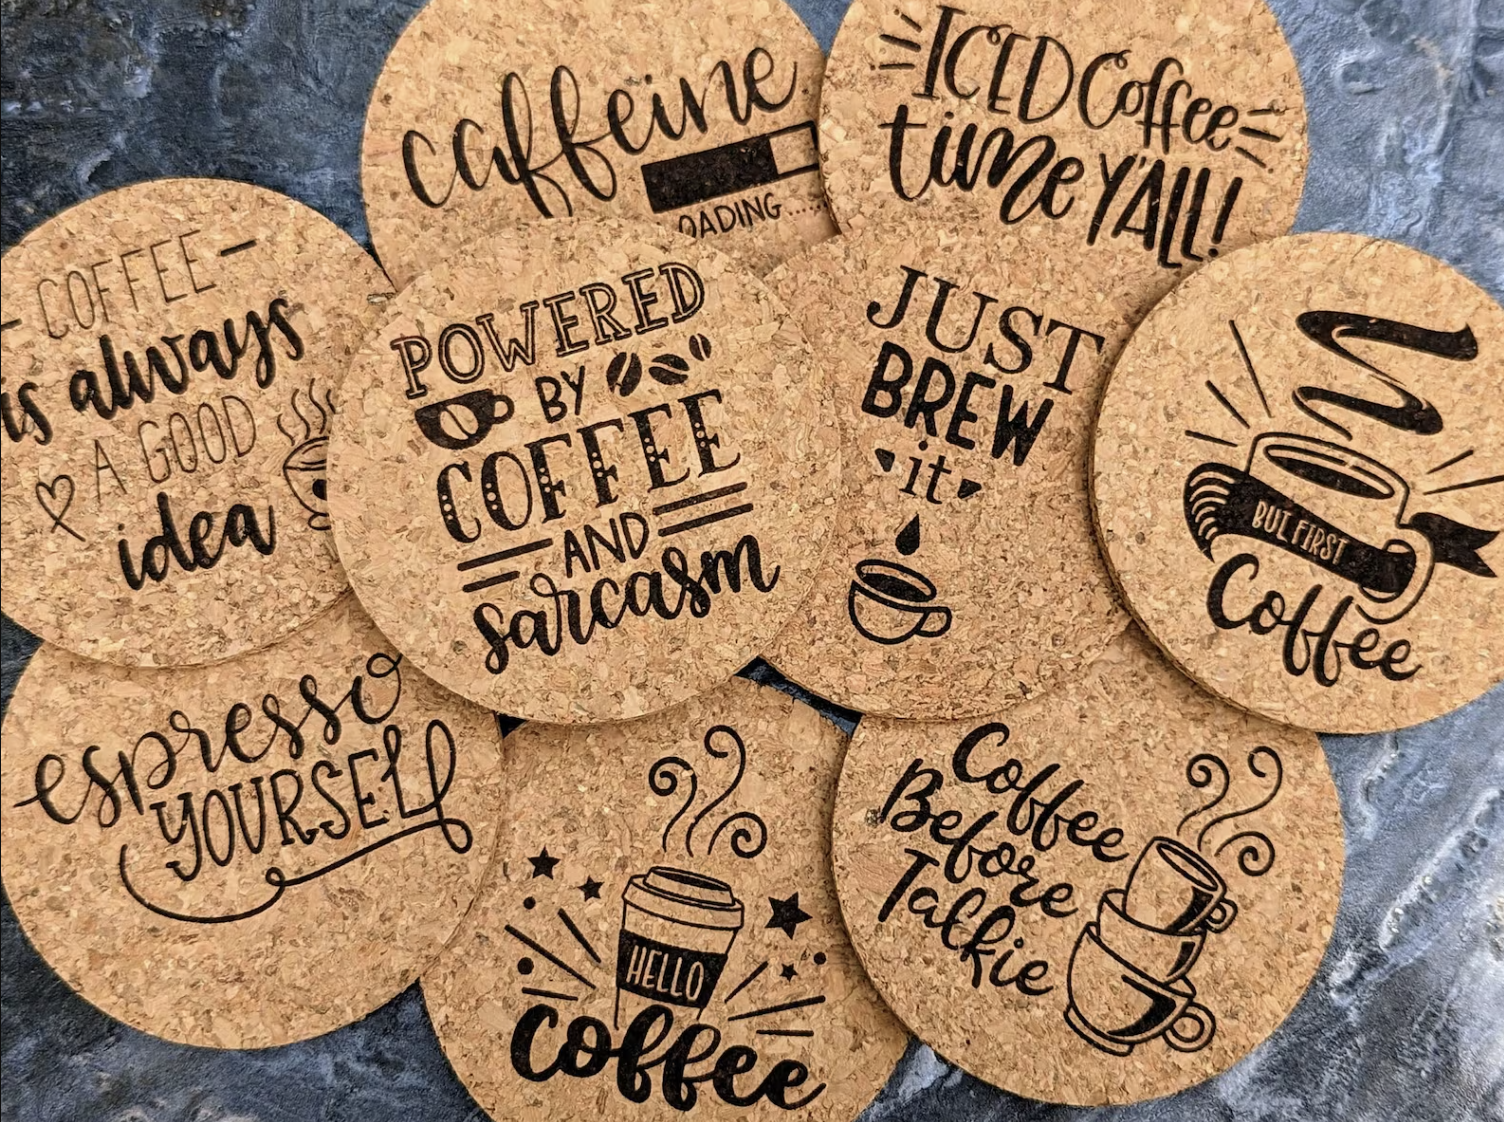 caffeine
OADING......
ICED Coffee
time Y'ALL!
COFFEE
is always
A GOOD
idea
POWERED
BY
COFFEE
AND
sarcasm
JUST
BREW
it
BUT FIRST
Coffee
espresso
YOURSELF
HELLO
coffee
Coffee
Before
Talkie